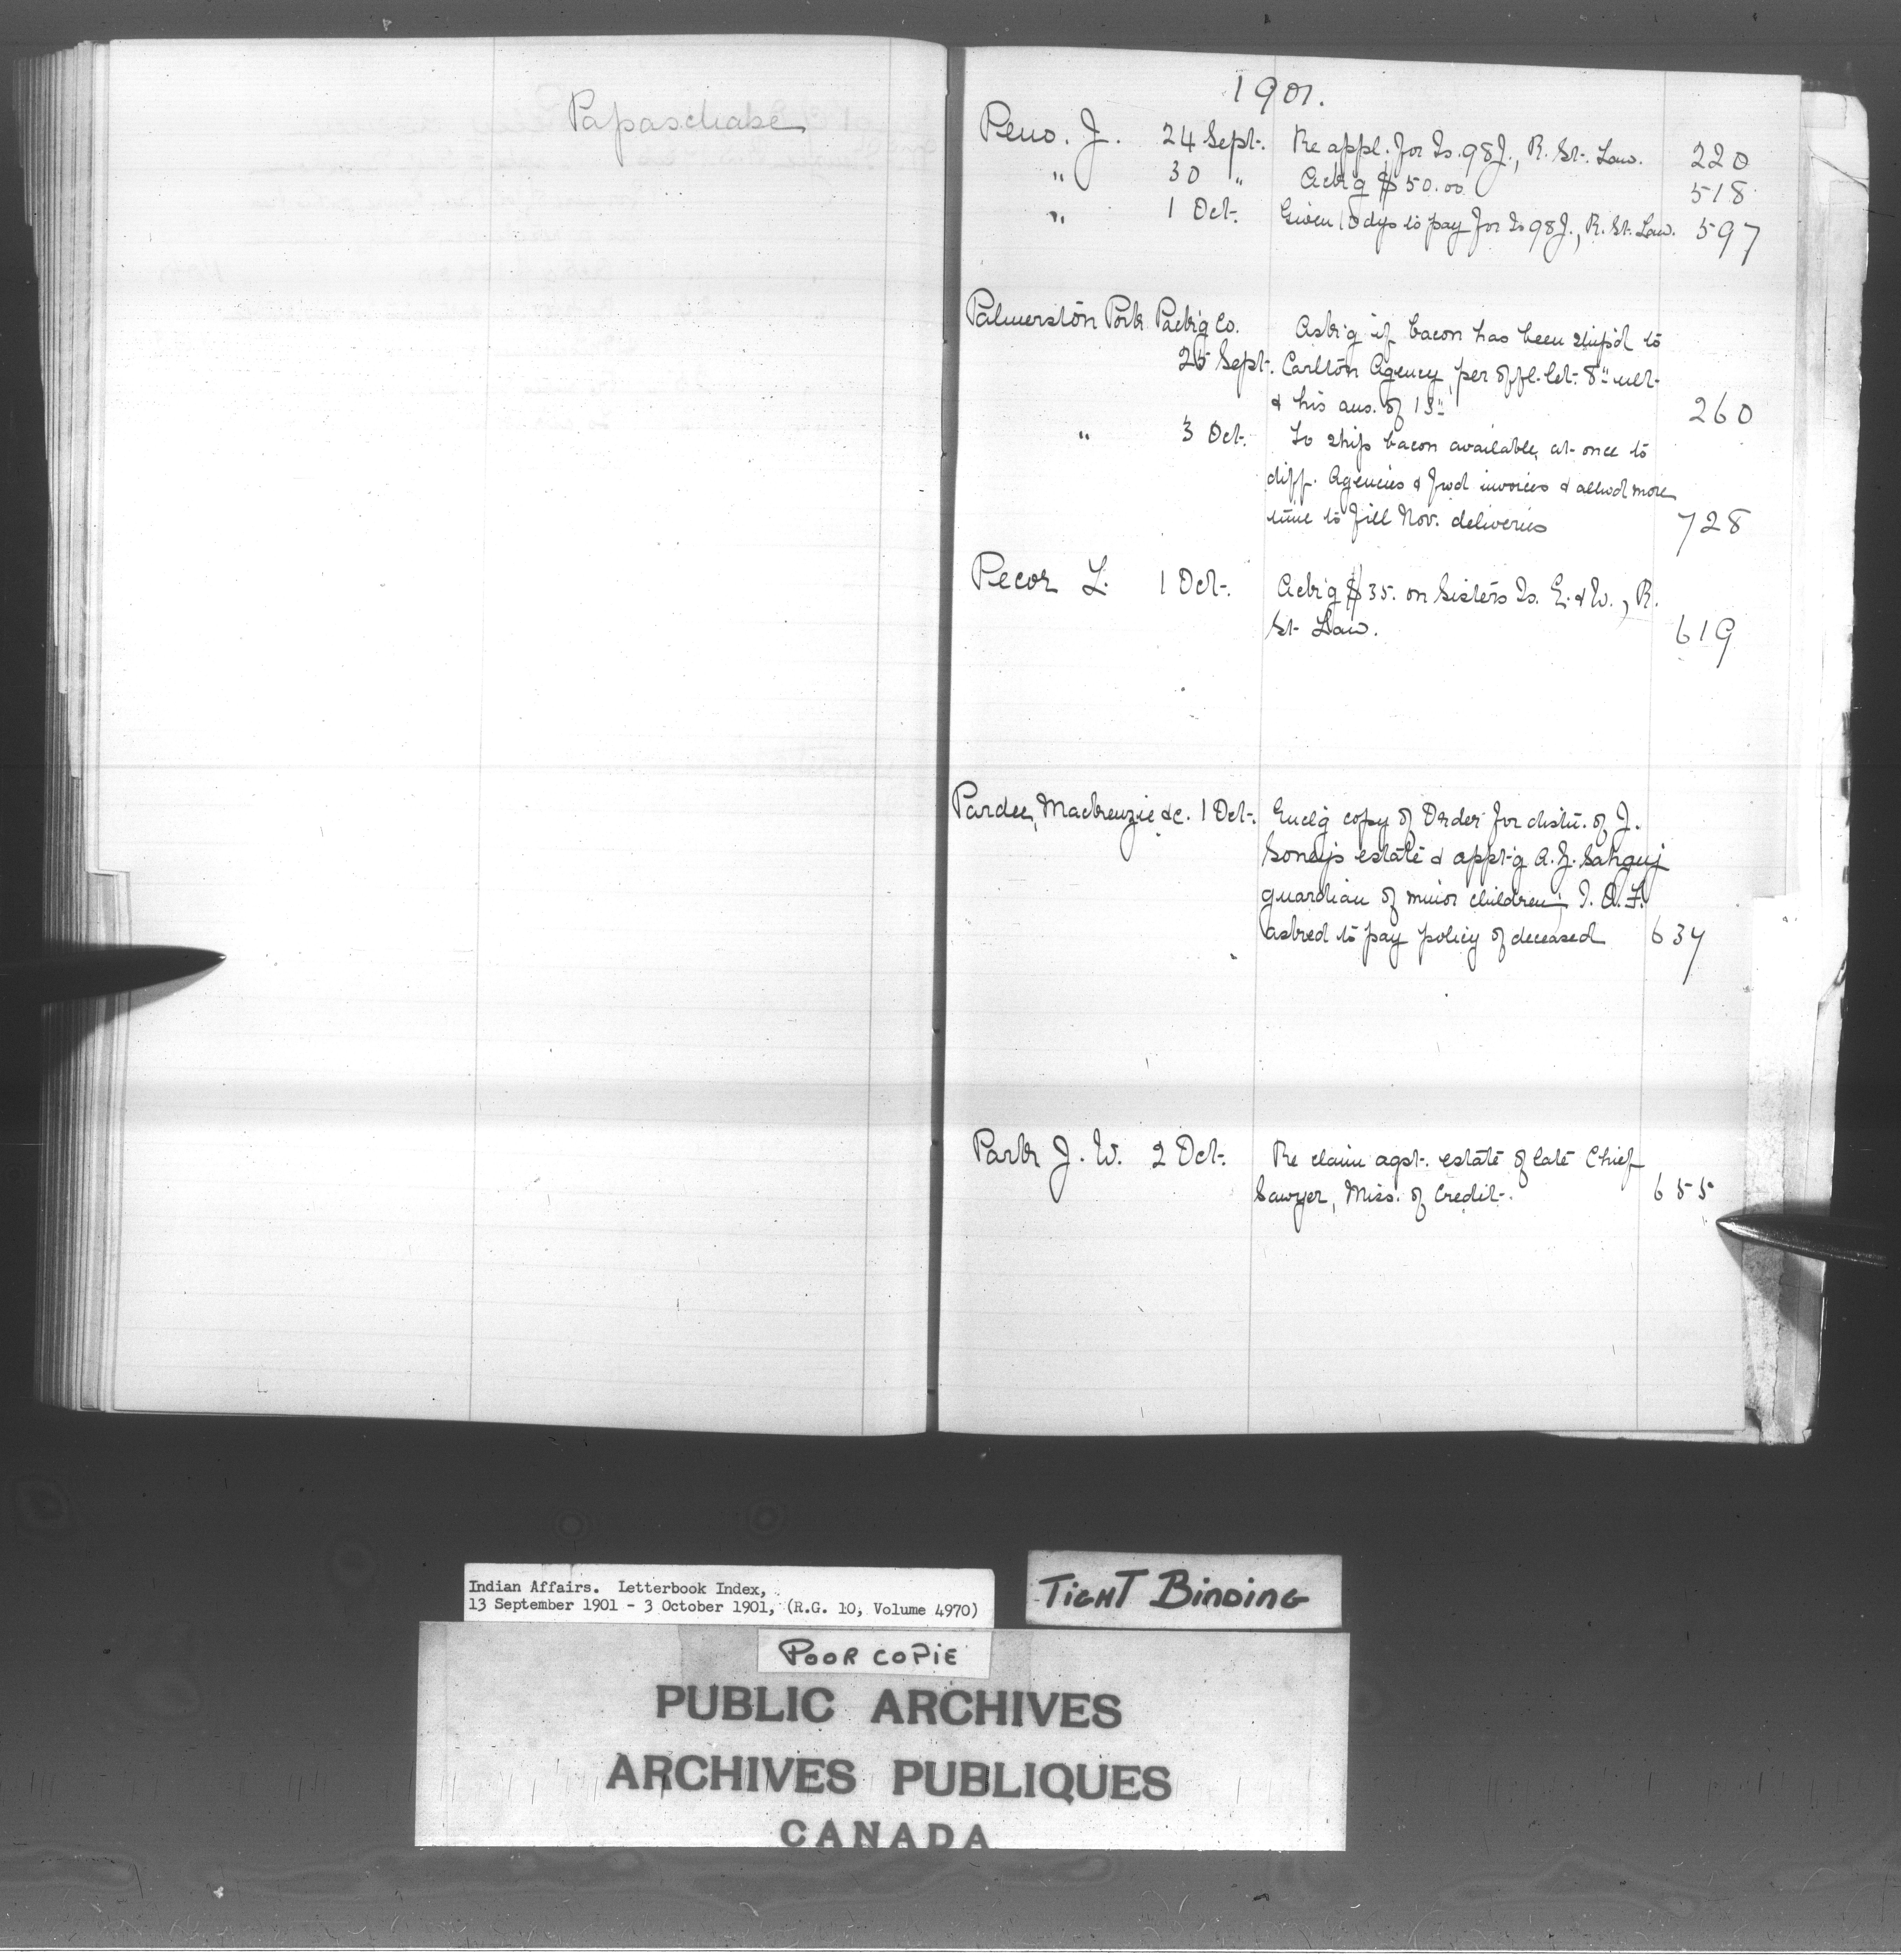 Papaschase
1901.
Peno. J. 24 Sept. Re appl. for Is. 98J., R. St. Law. 220
" 30 " Ack'g $50.00 518
" 1 Oct. Given 10 dys to pay for Is 98J., R. St. Law. 597
Palmerston Pork Pack'g Co. Ask'g if bacon has been ship'd to
25 Sept. Carlton Agency, per offl. let. 8" ult.
& his ans. of 13" 260
" 3 Oct. To ship bacon available at once to
diff. Agencies & fwd invoices & allwd more
time to fill Nov. deliveries 728
Pecor L. 1 Oct. Ack'g $35. on Sisters Is. E. & W., R.
St. Law. 619
Pardee, Mackenzie &c. 1 Oct. Encl'g copy of Order for distn. of J.
Soney's estate & appt'g A. J. guardian of minor children; I. O. F.
asked to pay policy of deceased 634
Park J. W. 2 Oct. Re claim agst. estate of late Chief
Sawyer, Miss. of Credit. 655
Indian Affairs. Letterbook Index,
13 September 1901 - 3 October 1901, (R.G. 10, Volume 4970)
TIGHT BINDING
POOR COPIE
PUBLIC ARCHIVES
ARCHIVES PUBLIQUES
CANADA